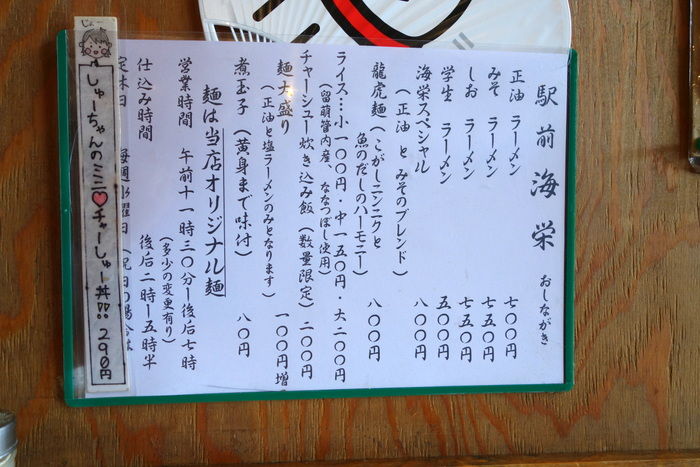 駅前海栄 おしながき
正油 ラーメン 七〇〇円
みそ ラーメン 七五〇円
しお ラーメン 七五〇円
学生 ラーメン 五〇〇円
海栄スペシャル 八〇〇円
(正油 と みそのブレンド)
龍虎麺(こがしニンニクと 八〇〇円
魚のだしのハーモニー)
ライス…小一〇〇円・中一五〇円・大二〇〇円
(留萌管内産、ななつぼし使用)
チャーシュー炊き込み飯(数量限定)二〇〇円
麺大盛り 一〇〇円増
(正油と塩ラーメンのみとなります)
煮玉子(黄身まで味付) 八〇円
麺は当店オリジナル麺
営業時間 午前十一時三〇分ー後后七時
(多少の変更有り)
仕込み時間 後后二時ー五時半
定休日 毎週水曜日(祝日の場合は
じゅー
しゅーちゃんのミニ♡チャーしゅー丼!! 290円